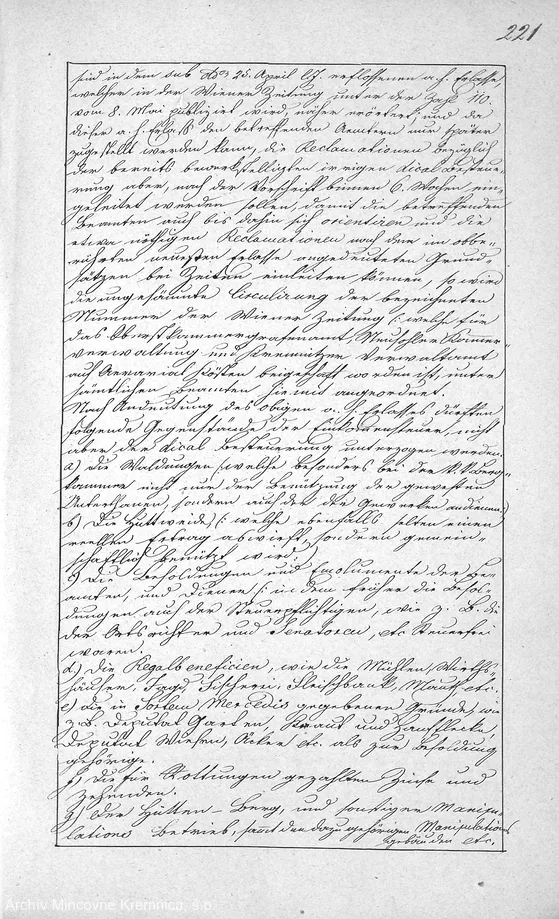 221
sind in dem sub dto 25. April l.J. erflossenen a.h. Erlasse,
welcher in der Wiener Zeitung unter der Zahl 110.
vom 8. Mai publizirt wird, näher erörtert und da
dieser a.h. Erlaß den betreffenden Aemtern nur später
zugestellt werden kann, die Reclamationen bezüglich
der bereits bewerkstelligten irrigen dical Besteue-
rung aber, nach der Vorschrift binnen 6. Wochen, ein-
geleitet werden sollen, damit die betreffenden
Beamten auch bis dahin sich orientiren und die
etwa nöthigen Reclamationen nach den im obbe-
rührten neuesten Erlasse angedeuteten Grund-
sätzen bei Zeiten einleiten können, so wird
die ungesäumte Circulirung der bezeichneten
Nummer der Wiener Zeitung /: welche für
das Oberstkammergrafenamt, Neusohler Kammer-
verwaltung und Kremnitzer Verwaltamt
auf Aerarial Kösten beigeschafft worden ist, unter
sämtlichen Beamten hiemit angeordnet.
Nach Andeutung des obigen a. h. Erlasses dürften
folgende Gegenstände der Einkommensteuer, nicht
aber der dical Besteuerung unterzogen werden.
a) die Waldungen /: welche besonders bei der k. k. Berg-
kammer nicht nur der Benützung der gewesten
Unterthanen, sondern auch der der Gewerken
b) Die Hutweide, /: welche ebenfalls selten einen
reellen Ertrag abwirft, sondern gemein-
schaftlich benützt wird.
c) Die Besoldungen und Emolumente der Be-
amten, und Diener /: indem früher die Besol-
dungen auch der Steuerpflichtigen, wie z. B. die
der Ortsrichter und Senatoren, etc Steuerfrei
waren.
d.) die Regalbeneficien, wie die Mühlen, Wirths-
häuser, Jagd, Fischerei, Fleischbank, Mauth etc.
e) die in Sortem Mercedis gegebenen Gründe, wie
z. B. Deputat Garten, Kraut und Hanfflecke,
Deputat Wiesen, Äcker etc. als zur Besoldung
gehörige.
f.) Die für Rottungen gezahlten Zinse und
Zehenden.
g) Der Hütten- Berg, und sonstiger Manipu-
lations Betrieb, sammt den dazu gehörigen Manipulations
gebäuden etc.
Archív Mincovne Kremnica, š.p.